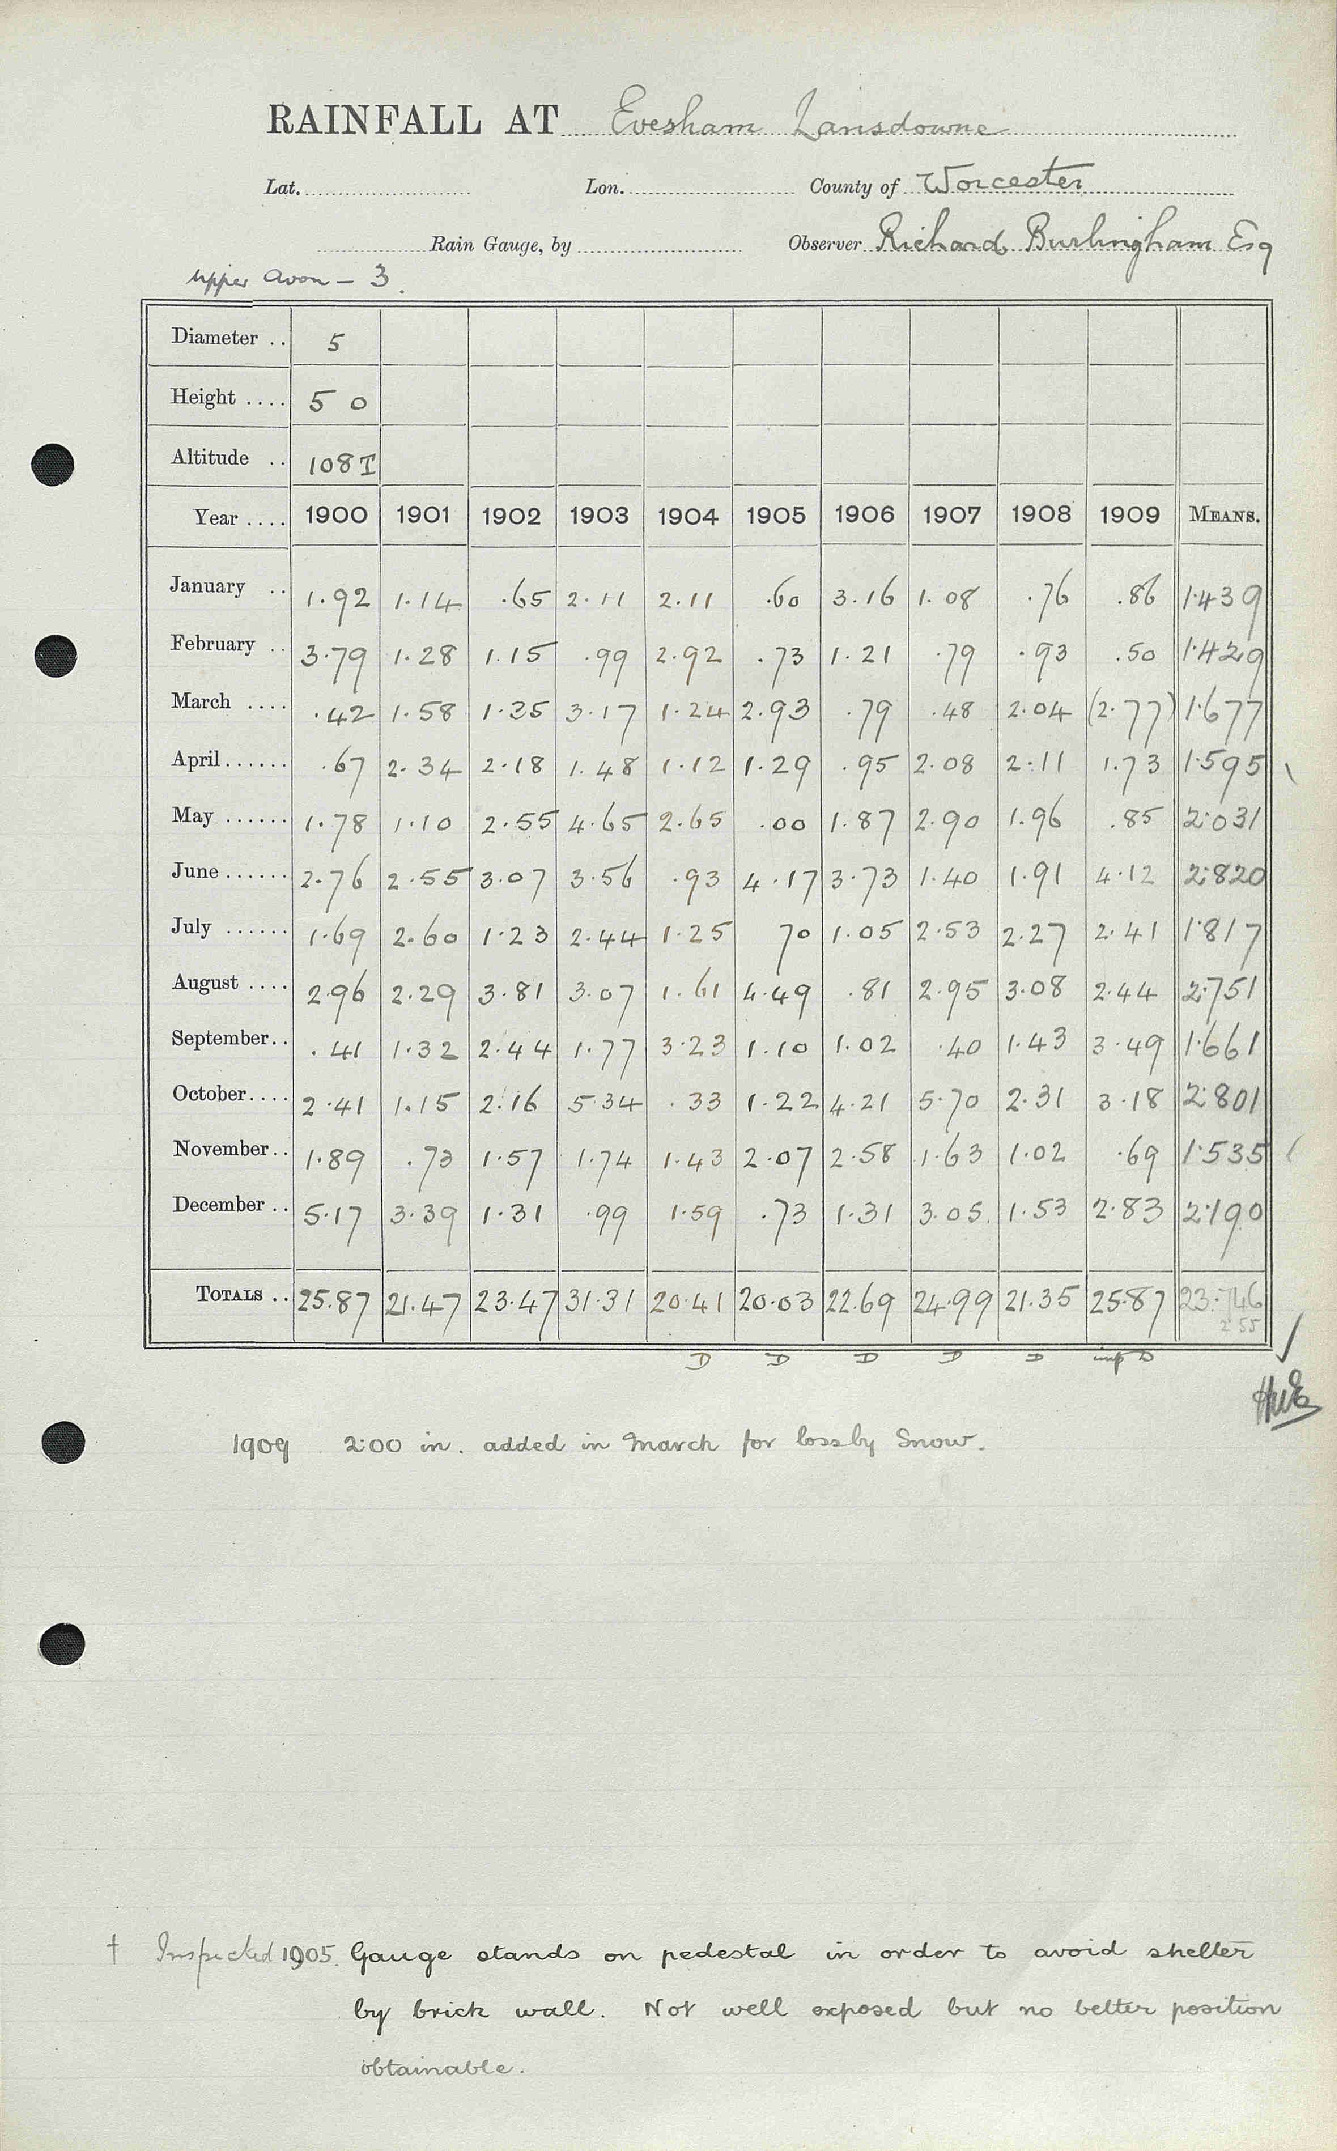 RAINFALL AT Evesham Lansdowne
Lat. Lon. County of Worcester
Rain Gauge, by Observer Richard Burlingham Esq
Upper Avon – 3.
Diameter .. 5
Height .... 5 0
Altitude .. 108 T
Year .... 1900 1901 1902 1903 1904 1905 1906 1907 1908 1909 MEANS.
January .. 1.92 1.14 .65 2.11 2.11 .60 3.16 1.08 .76 .86 1.439
February .. 3.79 1.28 1.15 .99 2.92 .73 1.21 .79 .93 .50 1.429
March .... .42 1.58 1.35 3.17 1.24 2.93 .79 .48 2.04 (2.77) 1.677
April ...... .67 2.34 2.18 1.48 1.12 1.29 .95 2.08 2.11 1.73 1.595
May ...... 1.78 1.10 2.55 4.65 2.65 .00 1.87 2.90 1.96 .85 2.031
June ...... 2.76 2.55 3.07 3.56 .93 4.17 3.73 1.40 1.91 4.12 2.820
July ...... 1.69 2.60 1.23 2.44 1.25 70 1.05 2.53 2.27 2.41 1.817
August .... 2.96 2.29 3.81 3.07 1.61 4.49 .81 2.95 3.08 2.44 2.751
September .. .41 1.32 2.44 1.77 3.23 1.10 1.02 .40 1.43 3.49 1.661
October .... 2.41 1.15 2.16 5.34 .33 1.22 4.21 5.70 2.31 3.18 2.801
November .. 1.89 .73 1.57 1.74 1.43 2.07 2.58 1.63 1.02 .69 1.535
December .. 5.17 3.39 1.31 .99 1.59 .73 1.31 3.05 1.53 2.83 2.190
TOTALS .. 25.87 21.47 23.47 31.31 20.41 20.03 22.69 24.99 21.35 25.87 23.746
2 55
D D D D D imp D
1909 2.00 in. added in March for loss by Snow.
† Inspected 1905. Gauge stands on pedestal in order to avoid shelter
by brick wall. Not well exposed but no better position
obtainable.